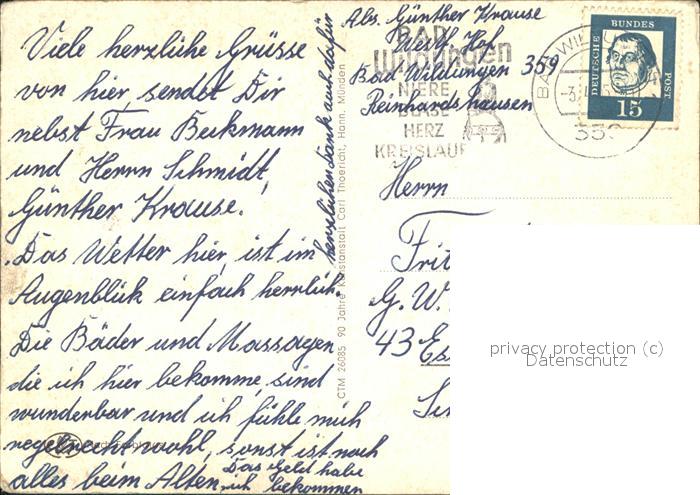 Viele herzliche Grüsse
von hier, sendet Dir
nebst Frau Beckmann
und Herrn Schmidt,
Günther Krause.
Das Wetter hier, ist im
Augenblick einfach herrlich.
Die Bäder und Massagen
die ich hier bekomme, sind
wunderbar und ich fühle mich
regelrecht wohl, sonst ist noch
alles beim Alten.
Das Geld habe
ich bekommen
herzlichen Dank auch dafür
CTM 26085 90 Jahre Kunstanstalt Carl Thoericht, Hann. Münden
Abs. Günther Krause
Westf. Hof
Bad Wildungen 359
Reinhardshausen
BAD
Wildungen
NIERE
BLASE
HERZ
KREISLAUF
DEUTSCHE
BUNDES
POST
15
Herrn
G. W.
43
privacy protection (c)
Datenschutz